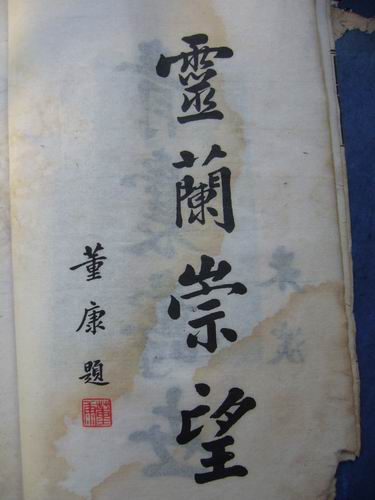 靈蘭崇望
董康題